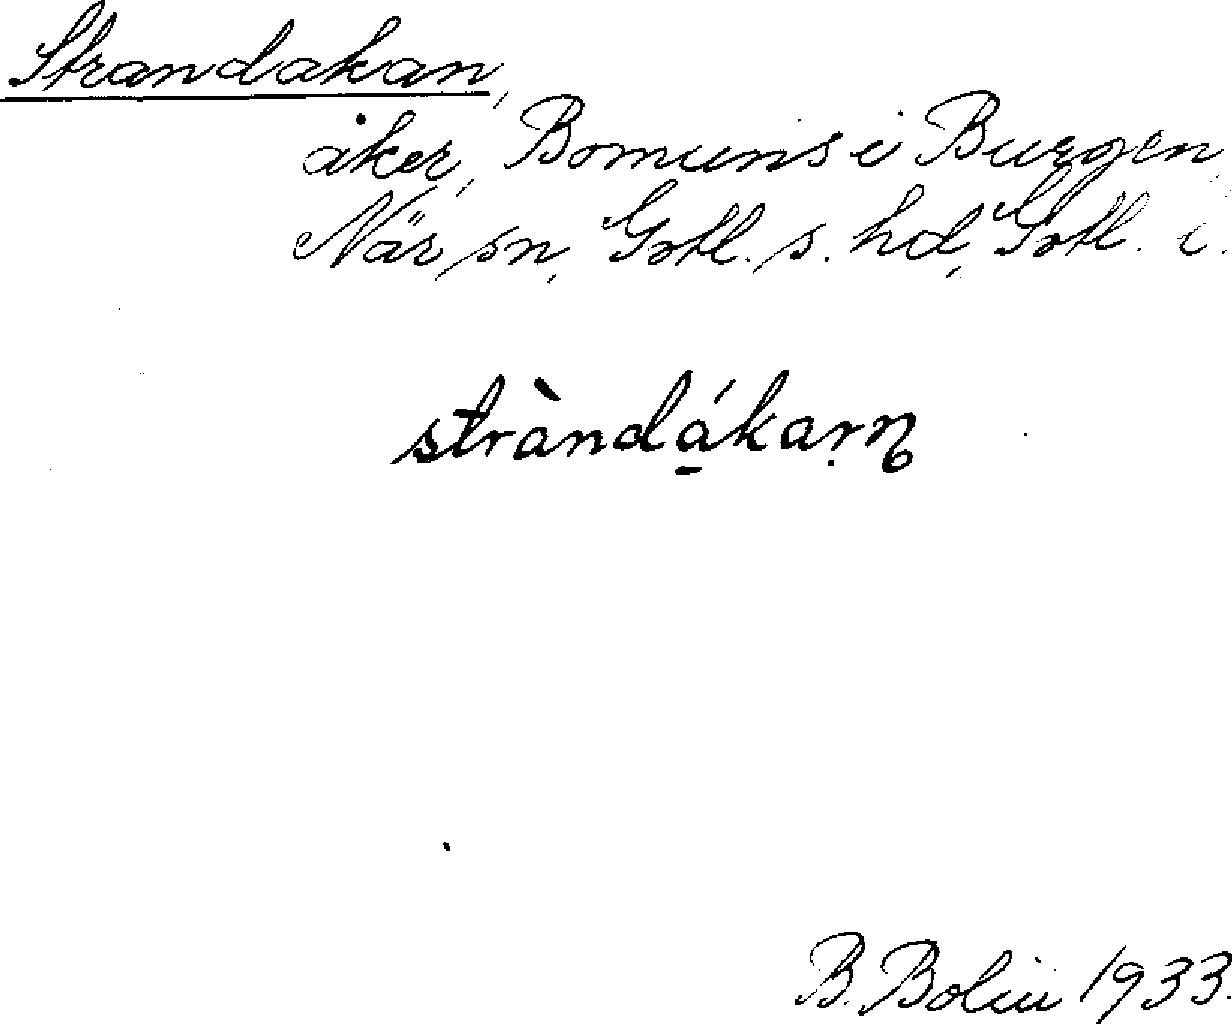 Strandakan,
åker, Bomuns i Burgen,
När sn, Gotl. s. hd, Gotl. l.
stràndá̱kaṛn
B. Bolin 1933.